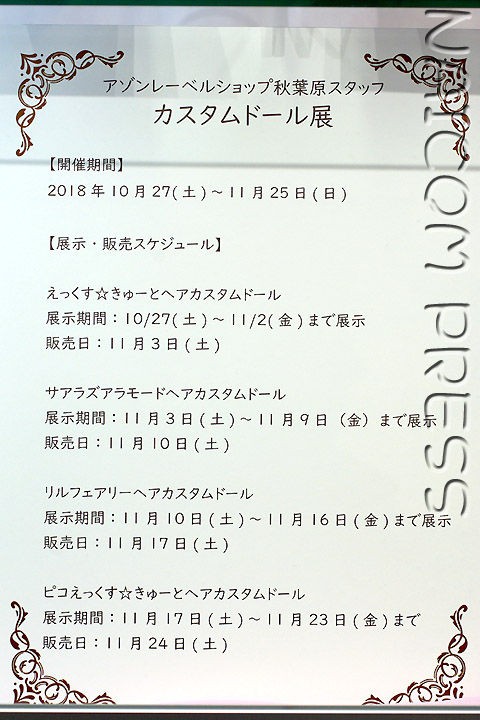 アゾンレーベルショップ秋葉原スタッフ
カスタムドール展
【開催期間】
2018年10月27(土)～11月25日(日)
【展示・販売スケジュール】
えっくす☆きゅーとヘアカスタムドール
展示期間：10/27(土)～11/2(金)まで展示
販売日：11月3日(土)
サアラズアラモードヘアカスタムドール
展示期間：11月3日(土)～11月9日（金）まで展示
販売日：11月10日(土)
リルフェアリーヘアカスタムドール
展示期間：11月10日(土)～11月16日(金)まで展示
販売日：11月17日(土)
ピコえっくす☆きゅーとヘアカスタムドール
展示期間：11月17日(土)～11月23日(金)まで
販売日：11月24日(土)
NATCOM PRESS